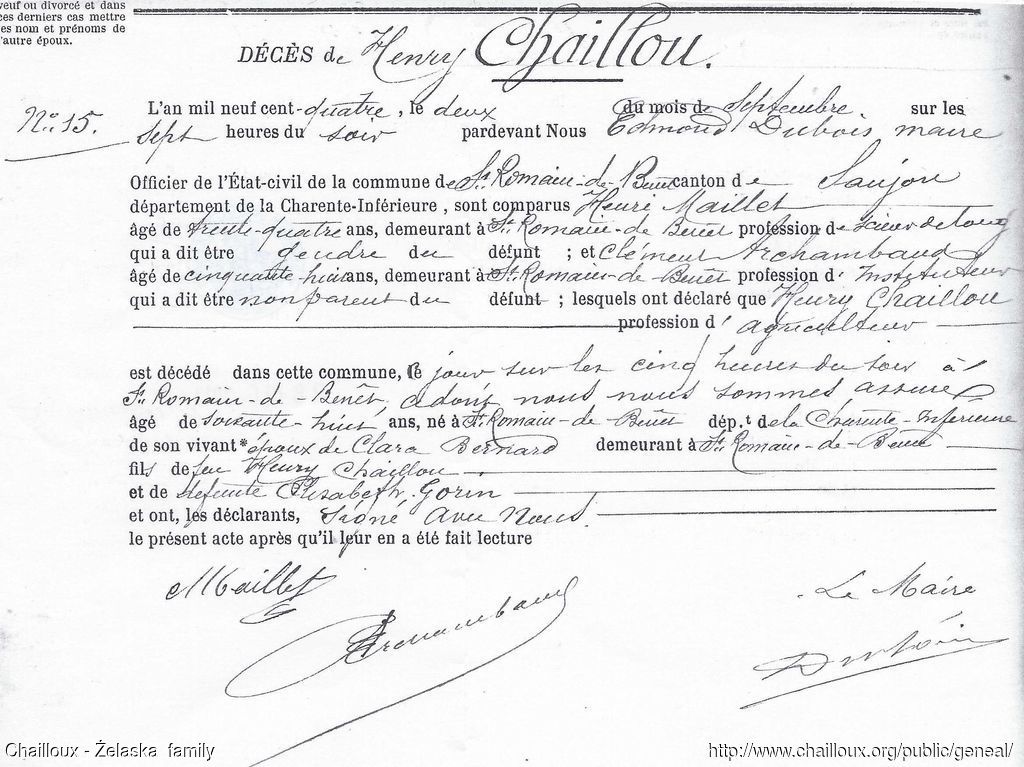 veuf ou divorcé et dans
ces derniers cas mettre
les nom et prénoms de
l'autre époux.
DÉCÈS de Henry Chaillou.
No. 15.
L'an mil neuf cent-quatre, le deux du mois de Septembre sur les
sept heures du soir pardevant Nous Edmond Dubois, maire
Officier de l'État-civil de la commune de St Romain-de-Benet canton de Saujon
département de la Charente-Inférieure, sont comparus Henri Maillet
âgé de trente-quatre ans, demeurant à St Romain-de Benêt profession de scieur de long
qui a dit être gendre du défunt ; et Clément Archambaud
âgé de cinquante huit ans, demeurant à St Romain-de-Benêt profession d' Instituteur
qui a dit être non parent du défunt ; lesquels ont déclaré que Henry Chaillou
profession d' agriculteur
est décédé dans cette commune, ce jour sur les cinq heures du soir à
St Romain-de-Benêt, a dont nous nous sommes assuré
âgé de soixante-huit ans, né à St Romain-de-Benet dép.t de la Charente-Inférieure
de son vivant * époux de Clara Bernard demeurant à St Romain-de-Benet
fils de feu Henry Chaillou
et de défunte Elisabeth Gorin
et ont, les déclarants, signé avec nous
le présent acte après qu'il leur en a été fait lecture
Maillet
Archambaud
Le Maire
Dubois
Chailloux - Želaska family
http://www.chailloux.org/public/geneal/